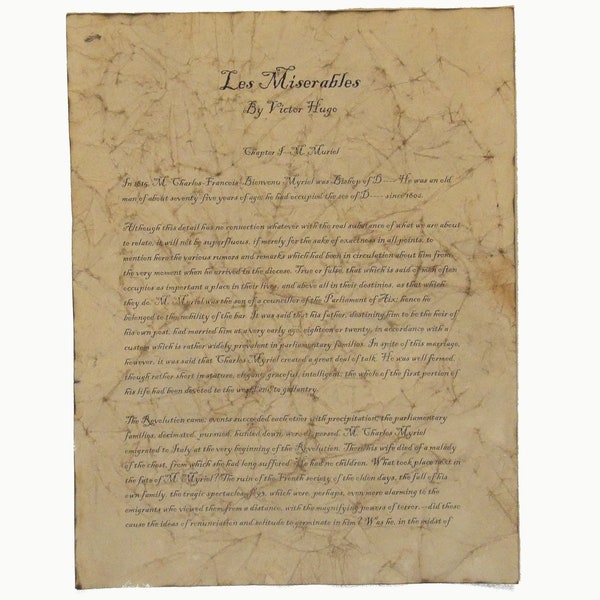 Les Miserables
By Victor Hugo
Chapter I- M. Muriel
In 1815, M. Charles-Francois-Bienvenu Myriel was Bishop of D---- He was an old
man of about seventy-five years of age; he had occupied the see of D---- since 1806.
Although this detail has no connection whatever with the real substance of what we are about
to relate, it will not be superfluous, if merely for the sake of exactness in all points, to
mention here the various rumors and remarks which had been in circulation about him from
the very moment when he arrived in the diocese. True or false, that which is said of men often
occupies as important a place in their lives, and above all in their destinies, as that which
they do. M. Myriel was the son of a councillor of the Parliament of Aix; hence he
belonged to the nobility of the bar. It was said that his father, destining him to be the heir of
his own post, had married him at a very early age, eighteen or twenty, in accordance with a
custom which is rather widely prevalent in parliamentary families. In spite of this marriage,
however, it was said that Charles Myriel created a great deal of talk. He was well formed,
though rather short in stature, elegant, graceful, intelligent; the whole of the first portion of
his life had been devoted to the world and to gallantry.
The Revolution came; events succeeded each other with precipitation; the parliamentary
families, decimated, pursued, hunted down, were dispersed. M. Charles Myriel
emigrated to Italy at the very beginning of the Revolution. There his wife died of a malady
of the chest, from which she had long suffered. He had no children. What took place next in
the fate of M. Myriel? The ruin of the French society of the olden days, the fall of his
own family, the tragic spectacles of '93, which were, perhaps, even more alarming to the
emigrants who viewed them from a distance, with the magnifying powers of terror,—did these
cause the ideas of renunciation and solitude to germinate in him? Was he, in the midst of